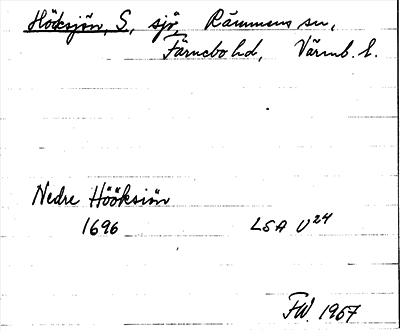 Höksjön, S, sjö, Rämmens sn,
Färnebo hd, Värml. l.
Nedre Hööksiön
1696 LSA U24
FW. 1967